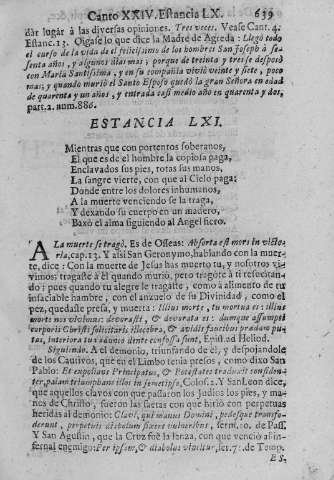 Canto XXIV. Estancia LX. 639
dàr lugar à las diversas opiniones. Tres veces. Vease Cant. 4.
Estanc. 13. Oigase lo que dice la Madre de Agreda: Llegó todo
el curso de la vida de el felicissimo de los hombres San Joseph à se-
senta años, y algunos dias mas; porque de treinta y tres se desposò
con Maria Santissima, y en su compañia vivió veinte y siete, poco
mas; y quando murió el Santo Esposo quedò la gran Señora en edad
de quarenta y un años, y entrada casi medio año en quarenta y dos,
part. 2. num. 886.
ESTANCIA LXI.
Mientras que con portentos soberanos,
El que es de el hombre la copiosa paga,
Enclavados sus pies, rotas sus manos,
La sangre vierte, con que al Cielo paga:
Donde entre los dolores inhumanos,
A la muerte venciendo se la traga,
Y dexando su cuerpo en un madero,
Baxò el alma siguiendo al Angel fiero.
A La muerte se tragò. Es de Osseas: Absorta est mors in victo-
ria, cap. 13. Y assi San Geronymo, hablando con la muer-
te, dice: Con la muerte de Jesus has muerto tu, y nosotros vi-
vimos; tragaste à èl quando muriò, pero tragòte à ti resucitan-
do; pues quando tu alegre le tragaste, como à alimento de tu
insaciable hambre, con el anzuelo de su Divinidad, como el
pez, quedaste presa, y muerta: Illius morte, tu mortua es: illius
morte nos vivimus: devorasti, & devorata es: dumque assumpti
corporis Christi sollicitaris illecebra, & avidis faucibus prædam pu-
tas, interiora tua adunco dente confossa sunt, Epist. ad Heliod.
Siguiendo. A el demonio, triunfando de èl, y despojandole
de los Cautivos, que en el Limbo tenia presos, como dixo San
Pablo: Et expolians Principatus, & Potestates traduxit confiden-
ter, palam triumphans illos in semetipso, Colos. 2. Y San Leon dice,
que aquellos clavos con que passaron los Judios los pies, y ma-
nos de Christo, fueron las saetas con que hiriò con perpetuas
heridas al demonio: Clavi, qui manus Domini, pedesque transfo-
derunt, perpetuis diabolum fixere vulneribus, serm. 10. de Pass.
Y San Agustin, que la Cruz fuè la lanza, con que venciò al in-
fernal enemigo: Per ipsam, & diabolus vincitur, ser. 7. de Temp.
ES-